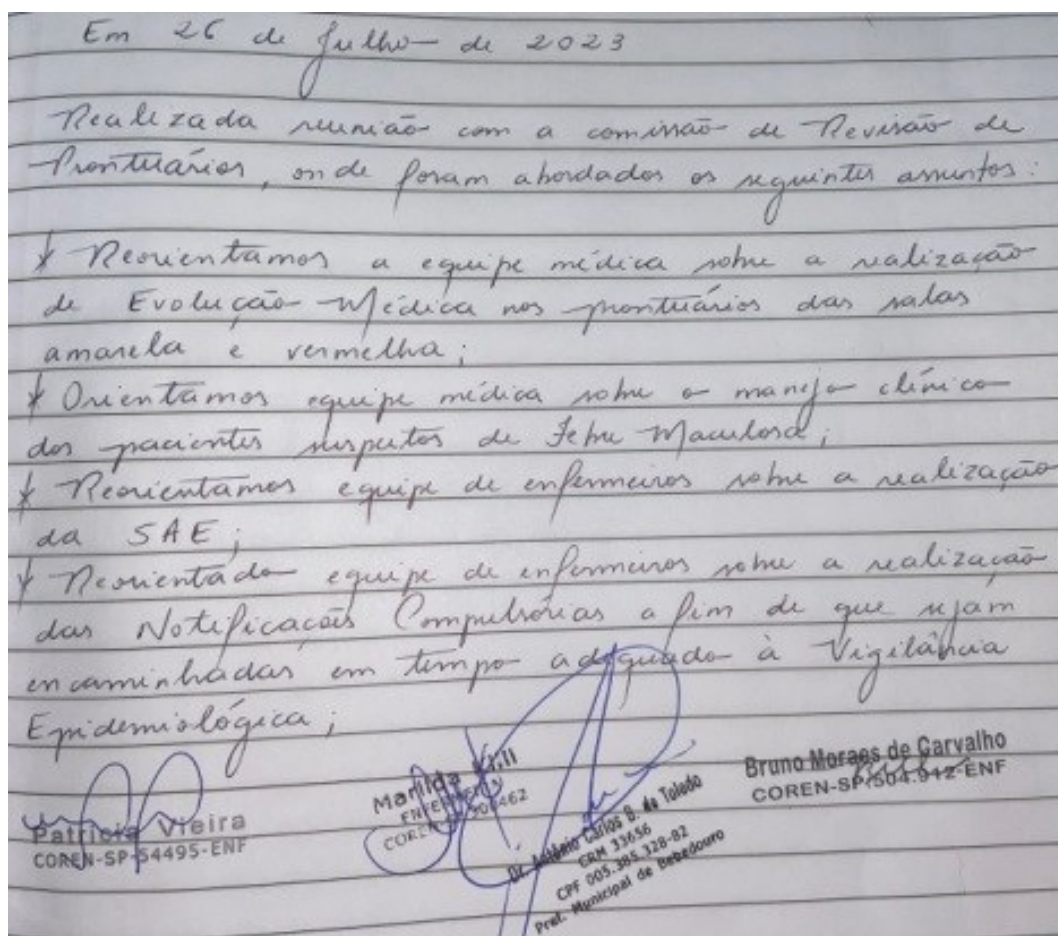 Em 26 de Julho de 2023
Realizada reunião com a comissão de Revisão de
Prontuários, onde foram abordados os seguintes assuntos:
* Reorientamos a equipe médica sobre a realização
de Evolução Médica nos prontuários das salas
amarela e vermelha;
* Orientamos equipe médica sobre o manejo clínico
dos pacientes suspeitos de Febre Maculosa;
* Reorientamos equipe de enfermeiros sobre a realização
da SAE;
* Reorientado equipe de enfermeiros sobre a realização
das Notificações Compulsórias a fim de que sejam
encaminhadas em tempo adequado à Vigilância
Epidemiológica;
Patricia Vieira
COREN-SP-54495-ENF
Marilda
Dr. Antônio Carlos B. de Toledo
CRM 33656
CPF 005.385.328-82
Pref. Municipal de Bebedouro
Bruno Moraes de Carvalho
COREN-SP/504.912-ENF